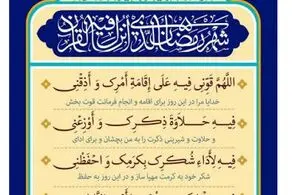 شهر رمضان الذی انزل فیه القرآن
اللَّهُمَّ قَوِّنِی فِیهِ عَلَى إِقَامَةِ أَمْرِکَ وَ أَذِقْنِی
خدایا مرا در این روز برای اقامه و انجام فرمانت قوت بخش
فِیهِ حَلاوَةَ ذِکْرِکَ وَ أَوْزِعْنِی
و حلاوت و شیرینی ذکرت را به من بچشان و برای ادای
فِیهِ لِأَدَاءِ شُکْرِکَ بِکَرَمِکَ وَ احْفَظْنِی
شکر خود به کرمت مهیا ساز و در این روز به حفظ